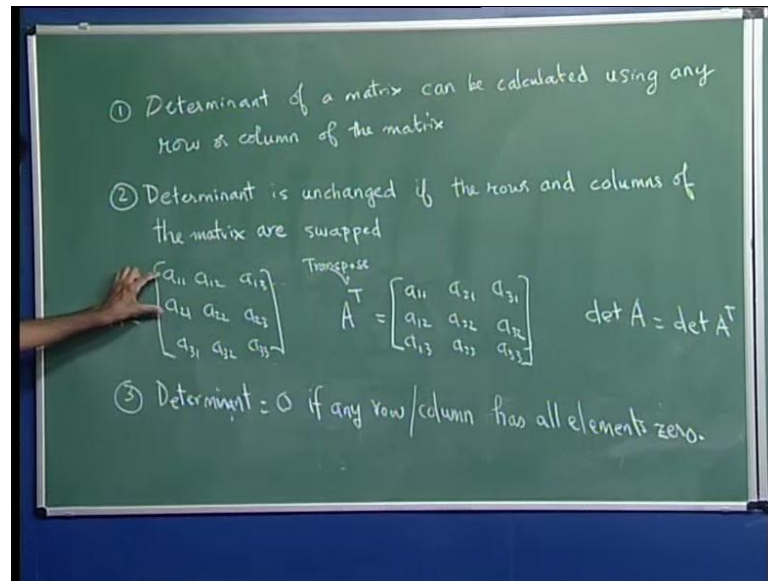 ① Determinant of a matrix can be calculated using any
row or column of the matrix
② Determinant is unchanged if the rows and columns of
the matrix are swapped
Transpose
[a₁₁ a₁₂ a₁₃] Aᵀ = [a₁₁ a₂₁ a₃₁]
[a₂₁ a₂₂ a₂₃] [a₁₂ a₂₂ a₃₂] det A = det Aᵀ
[a₃₁ a₃₂ a₃₃] [a₁₃ a₂₃ a₃₃]
③ Determinant = 0 if any row/column has all elements zero.